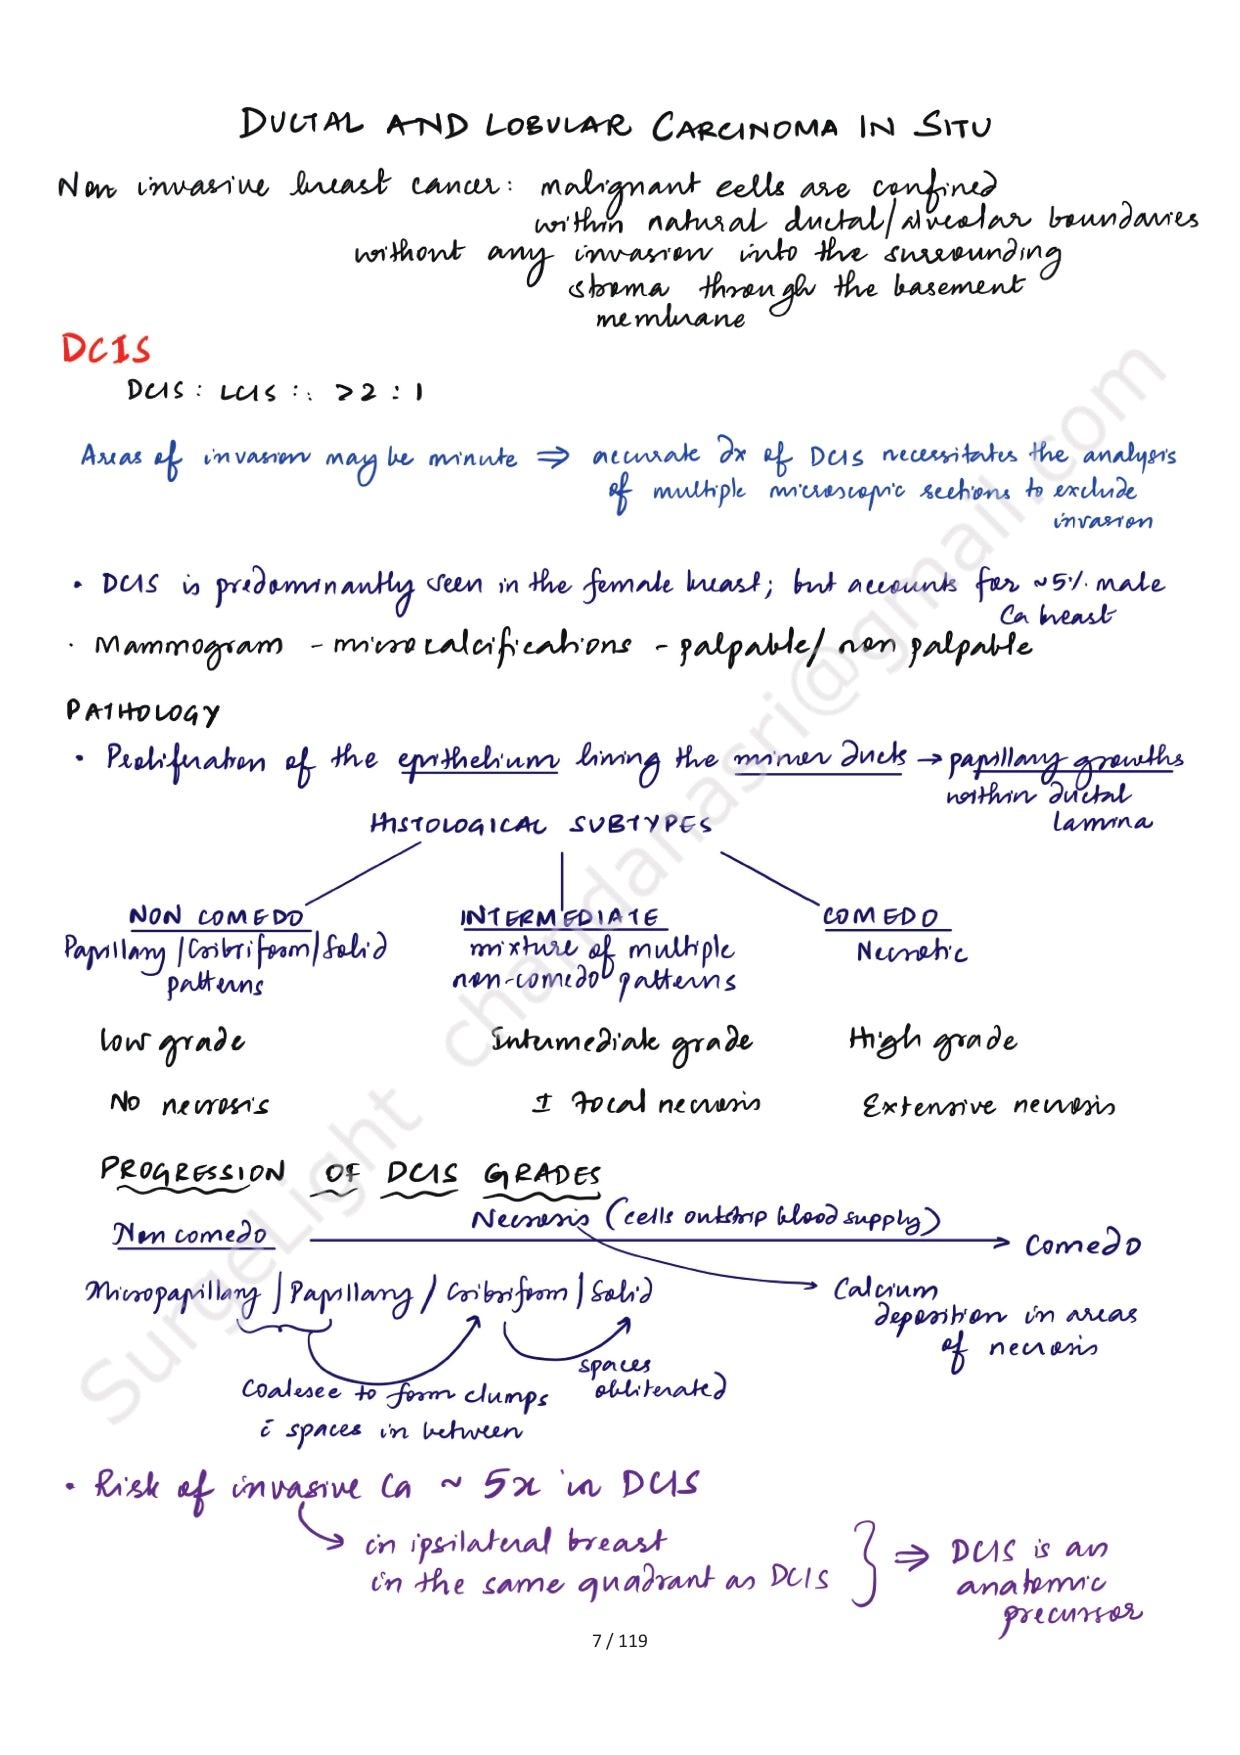 DUCTAL AND LOBULAR CARCINOMA IN SITU
Non invasive breast cancer: malignant cells are confined
within natural ductal/alveolar boundaries
without any invasion into the surrounding
stroma through the basement
membrane
DCIS
DCIS : LCIS :: >2 : 1
Areas of invasion may be minute ⇒ accurate dx of DCIS necessitates the analysis
of multiple microscopic sections to exclude
invasion
• DCIS is predominantly seen in the female breast; but accounts for ~5% male
Ca breast
• Mammogram - microcalcifications - palpable/non palpable
PATHOLOGY
• Proliferation of the epithelium lining the minor ducts → papillary growths
within ductal
lamina
HISTOLOGICAL SUBTYPES
NON COMEDO INTERMEDIATE COMEDO
Papillary/Cribriform/Solid mixture of multiple Necrotic
patterns non-comedo patterns
Low grade Intermediate grade High grade
No necrosis ± Focal necrosis Extensive necrosis
PROGRESSION OF DCIS GRADES
Necrosis (cells outstrip blood supply)
Non comedo → Comedo
Micropapillary/Papillary/Cribriform/Solid Calcium
deposition in areas
of necrosis
spaces
obliterated
Coalesce to form clumps
c̄ spaces in between
• Risk of invasive Ca ~ 5x in DCIS
in ipsilateral breast
in the same quadrant as DCIS } ⇒ DCIS is an
anatomic
precursor
7 / 119
SurgeLight chandanasri@gmail.com